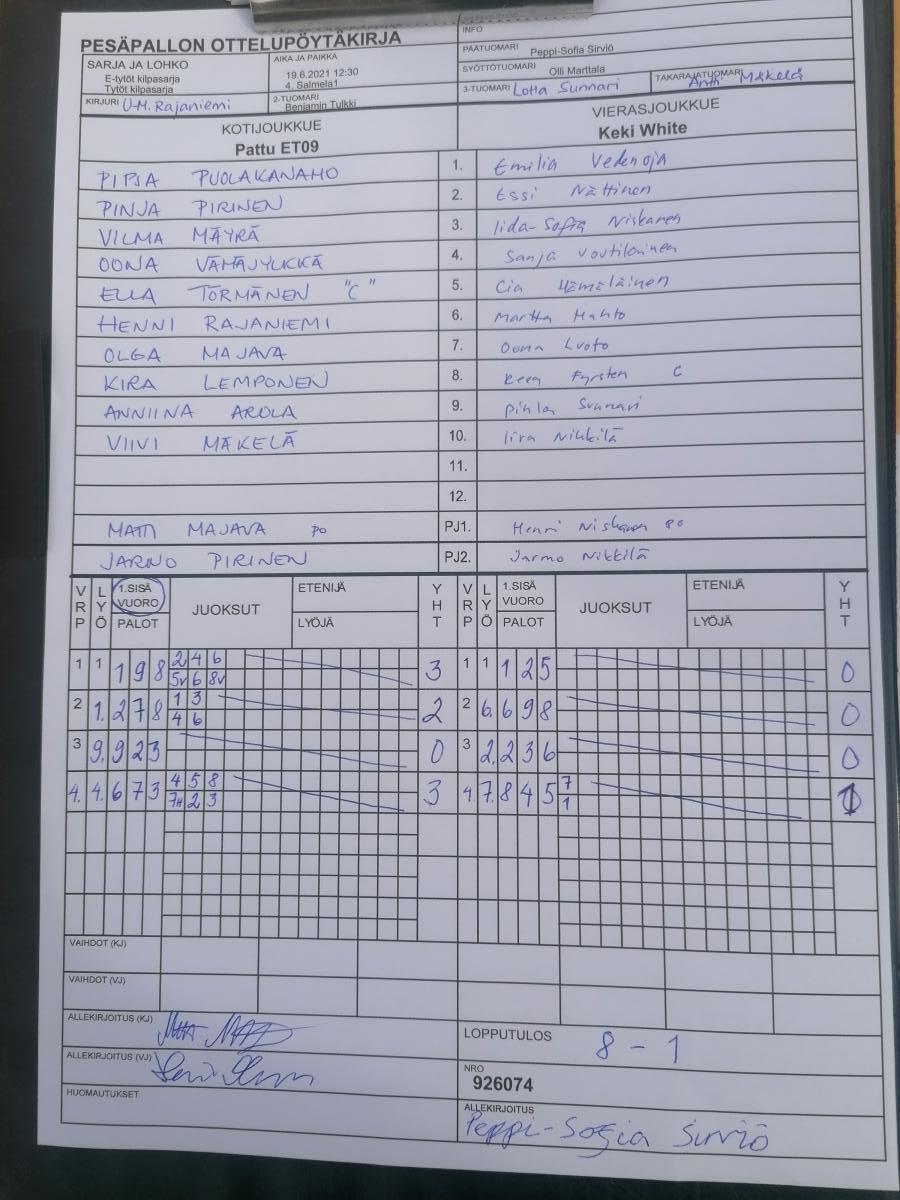 PESÄPALLON OTTELUPÖYTÄKIRJA
INFO
SARJA JA LOHKO
E-tytöt kilpasarja
Tytöt kilpasarja
AIKA JA PAIKKA
19.6.2021 12:30
4. Salmela1
PÄÄTUOMARI Peppi-Sofia Sirviö
SYÖTTÖTUOMARI Olli Marttala
KIRJURI U-M. Rajaniemi
2-TUOMARI Benjamin Tulkki
3-TUOMARI Lotta Sunnari
TAKARAJATUOMARI Antti Mäkelä
KOTIJOUKKUE
Pattu ET09
VIERASJOUKKUE
Keki White
PIPSA PUOLAKANAHO 1. Emilia Vedenoja
PINJA PIRINEN 2. Essi Nättinen
VILMA MÄYRÄ 3. Iida-Sofia Niskanen
OONA VÄHÄJYLKKÄ 4. Sanja Voutilainen
ELLA TÖRMÄNEN "C" 5. Cia Hämäläinen
HENNI RAJANIEMI 6. Martta Huhto
OLGA MAJAVA 7. Oona Luoto
KIRA LEMPONEN 8. Fyrsten C
ANNIINA AROLA 9. Pihla Sunnari
VIIVI MÄKELÄ 10. Iira Nikkilä
11.
12.
MATTI MAJAVA PO PJ1. Henri Niskanen PO
JARNO PIRINEN PJ2. Jarmo Nikkilä
VRP LYÖ 1.SISÄ VUORO PALOT JUOKSUT ETENIJÄ LYÖJÄ YHT VRP LYÖ 1.SISÄ VUORO PALOT JUOKSUT ETENIJÄ LYÖJÄ YHT
1 1 1 9 8 2 4 6 3 1 1 1 2 5 0
5v 6 8v
2 1. 2 7 8 1 3 2 2 6. 6 9 8 0
4 6
3 9. 9 2 3 0 3 2. 2 3 6 0
4. 4. 6 7 3 4 5 8 3 4. 7. 8 4 5 7 1
7H 2 3 1
VAIHDOT (KJ)
VAIHDOT (VJ)
ALLEKIRJOITUS (KJ)
LOPPUTULOS 8 - 1
ALLEKIRJOITUS (VJ)
NRO
926074
HUOMAUTUKSET
ALLEKIRJOITUS
Peppi-Sofia Sirviö